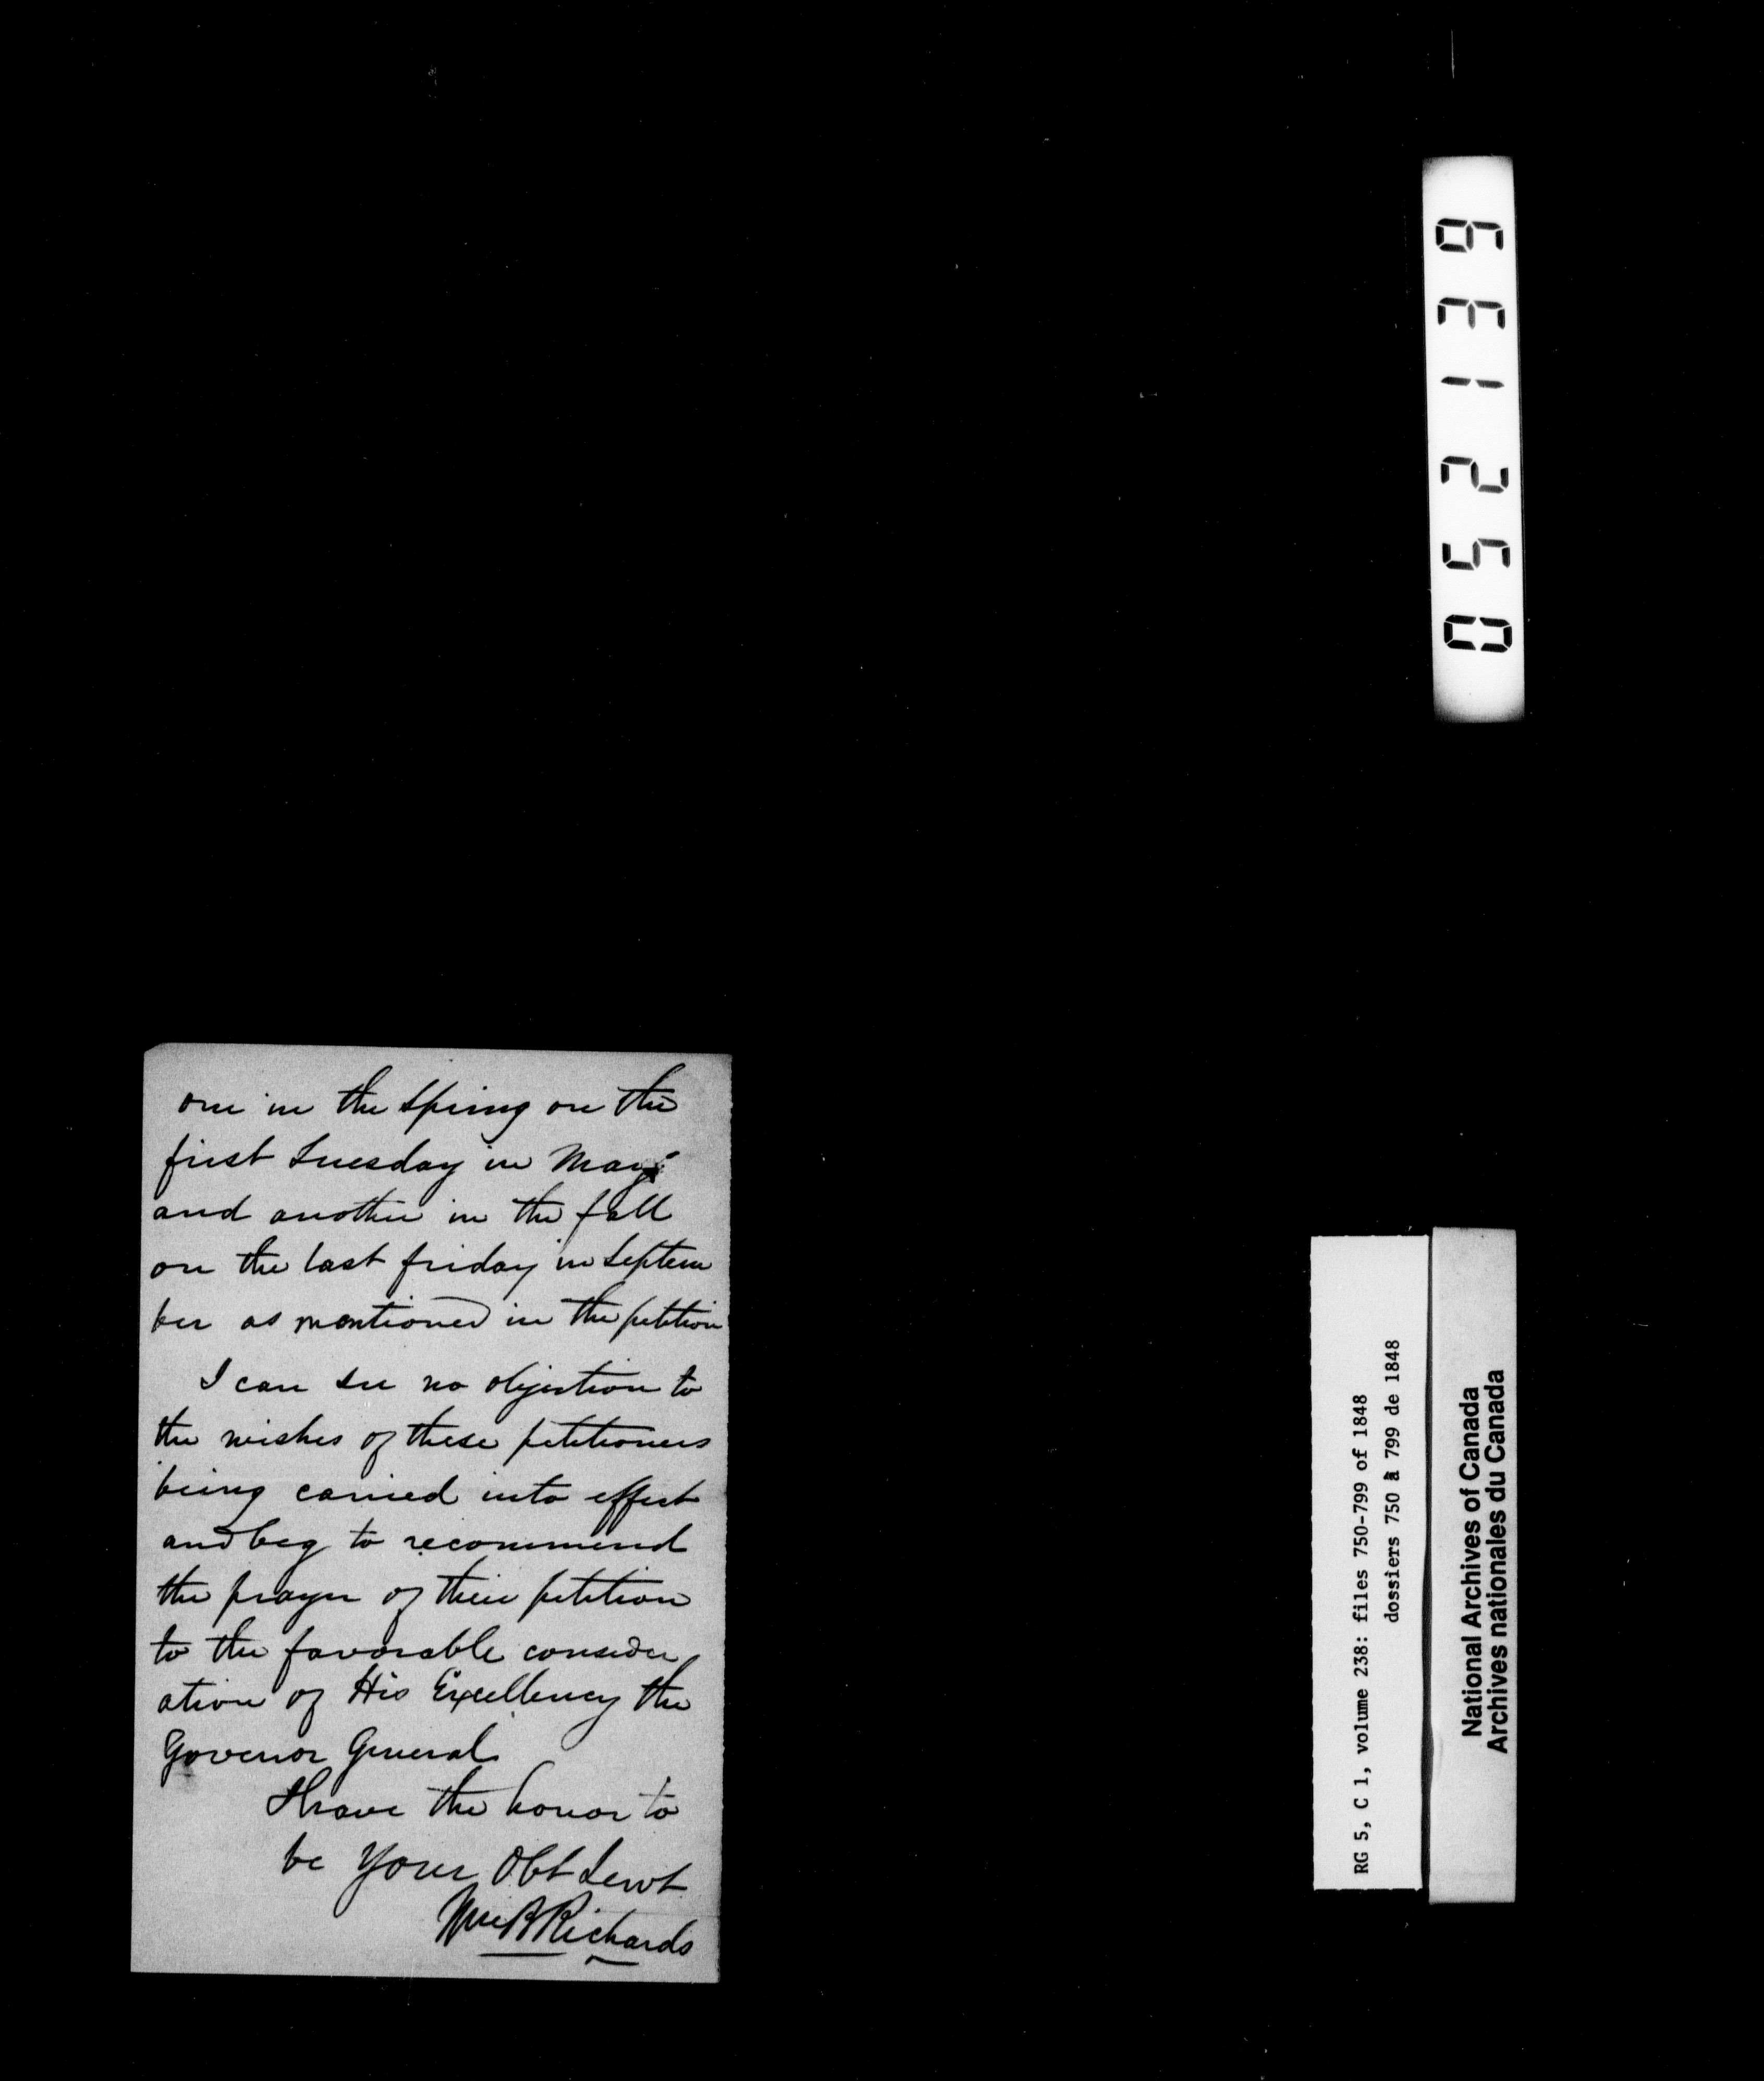 one in the Spring on the
first Tuesday in May
and another in the fall
on the last friday in Septem
ber as mentioned in the petition
I can see no objection to
the wishes of these petitioners
being carried into effect
and beg to recommend
the prayer of their petition
to the favorable consider
ation of His Excellency the
Govenor General
I have the honor to
be Your Obt Servt
Wm B Richards
052139
RG 5, C 1, volume 238: files 750-799 of 1848
dossiers 750 à 799 de 1848
National Archives of Canada
Archives nationales du Canada